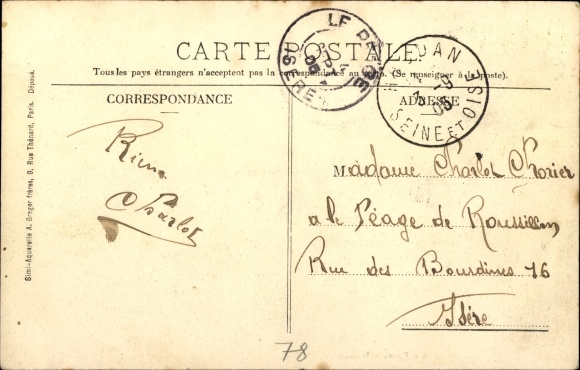 CARTE POSTALE
Tous les pays étrangers n'acceptent pas la correspondance au recto. (Se renseigner à la poste).
CORRESPONDANCE
ADRESSE
LE PEAGE
ISERE
OUAN
SEINE ET OISE
05
Rien
Charlot
Madame Charlot Chorier
a le Péage de Roussillon
Rue des Bourdines 76
Isère
Simi-Aquarelle A. Breger frères, 9, Rue Thénard, Paris. Déposé.
78